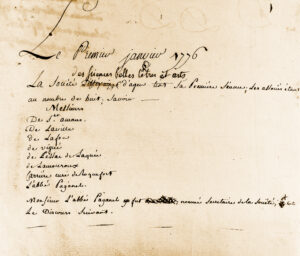 Le Premier janvier 1776
des sciences belles lettres et arts
La Société d'agen tint sa Premiere Séance, les associés étant
au nombre de huit, savoir
Messieurs
De St. amans.
De Lavile
De Lafon
de vigué
de Lassac de Laqués
de Lamouroux
Carriere curé de Roquefort
L'abbé Paganel.
Monsieur L'abbé Paganel fut nommé Secretaire de la Société, et
Le Discours Suivant.